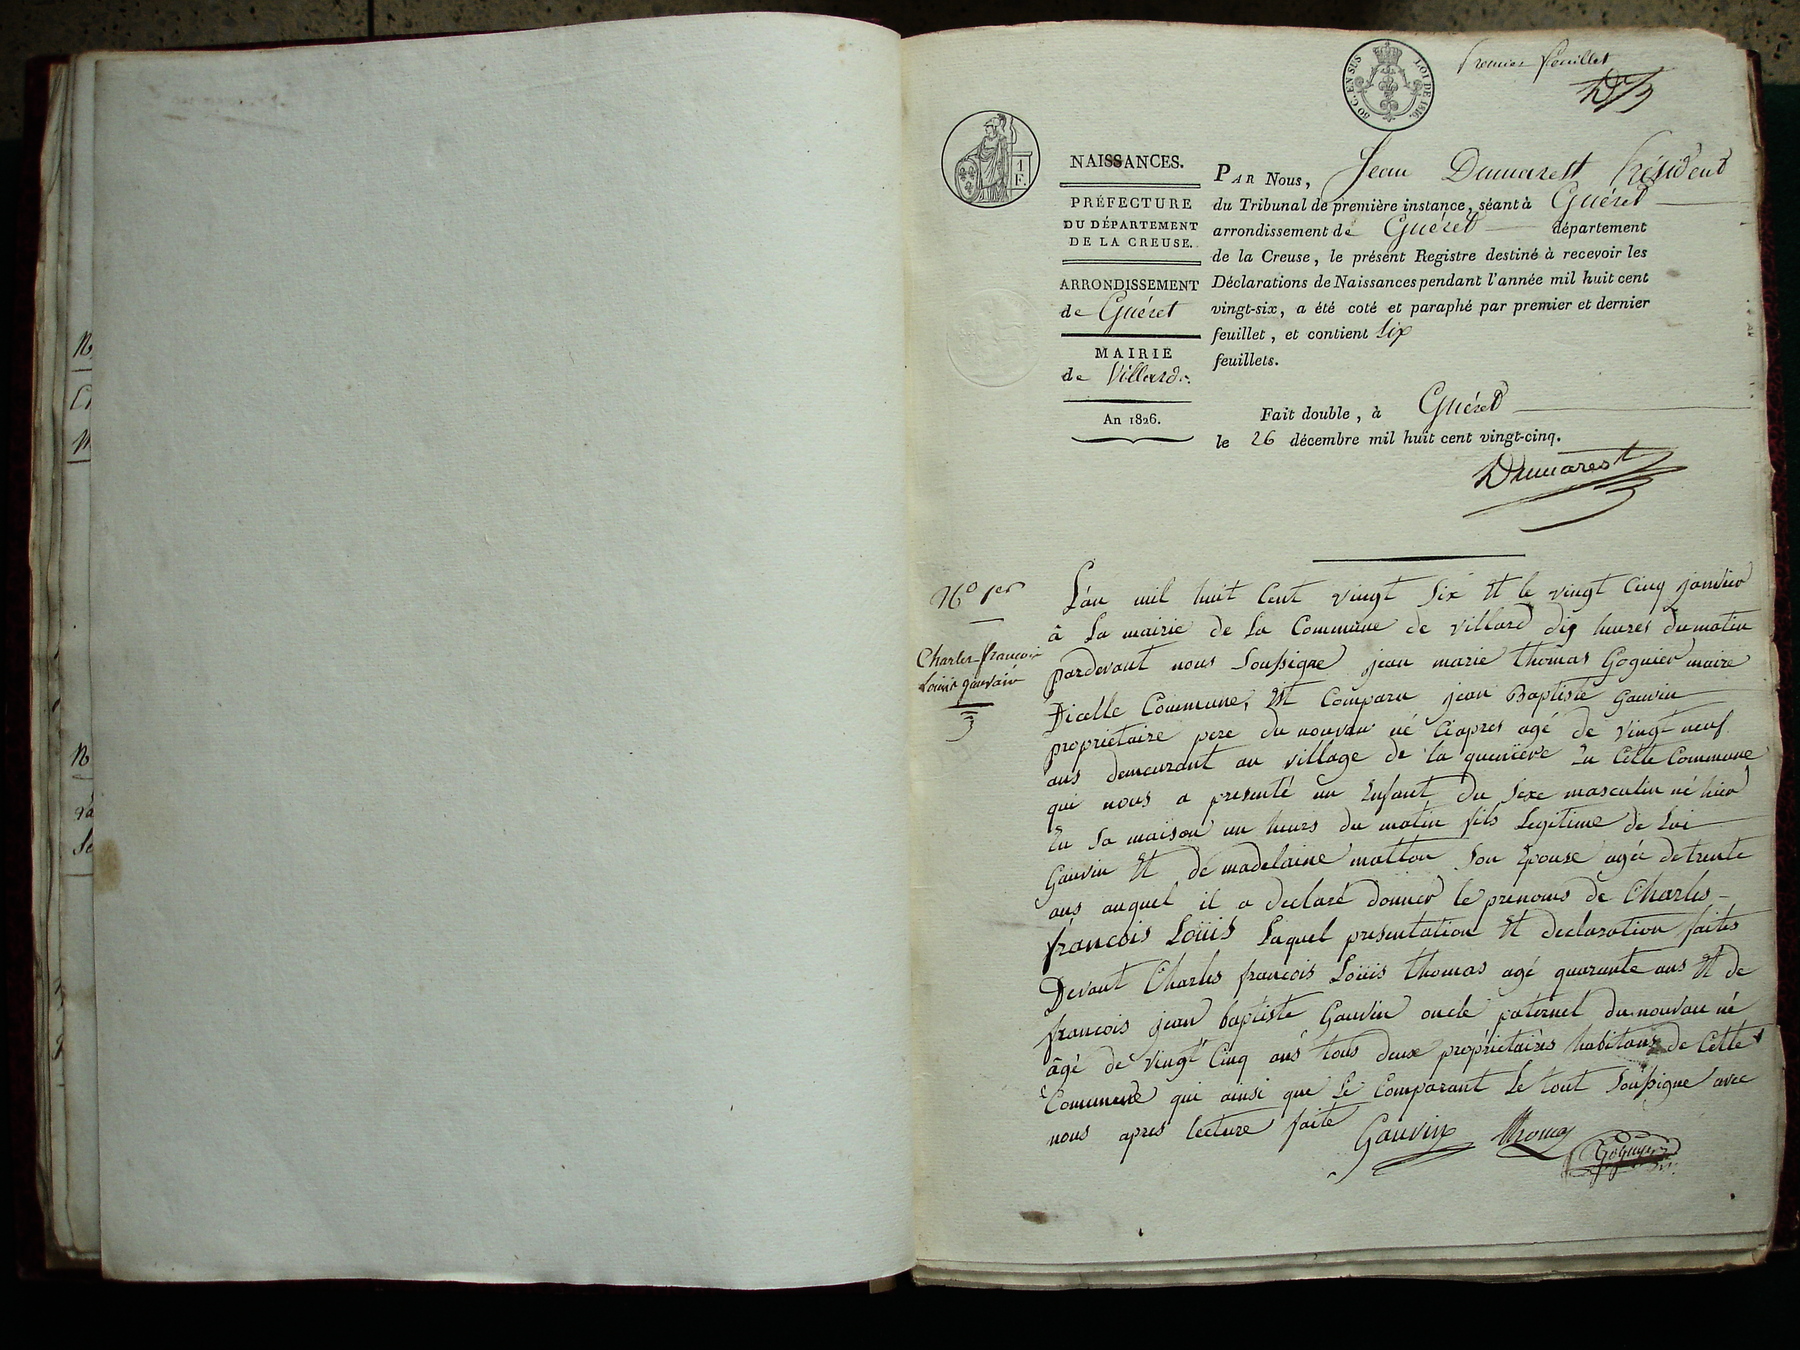 Premier feuillet
80 C. EN SUS
LOI DE 1816.
1 F.
NAISSANCES.
PRÉFECTURE
DU DÉPARTEMENT
DE LA CREUSE.
ARRONDISSEMENT
de Guéret
MAIRIE
de Villard
An 1826.
PAR Nous, Jean Dumarest Président
du Tribunal de première instance, séant à Guéret
arrondissement de Guéret département
de la Creuse, le présent Registre destiné à recevoir les
Déclarations de Naissances pendant l'année mil huit cent
vingt-six, a été coté et paraphé par premier et dernier
feuillet, et contient Six
feuillets.
Fait double, à Guéret
le 26 décembre mil huit cent vingt-cinq.
Dumarest
No 1er
Charles-francois
Louis gauvain
L'an mil huit Cent vingt Six Et le vingt Cinq janvier
à La mairie de La Commune de villard dix heures du matin
pardevant nous Soussigne jean marie thomas Goguier maire
Dicelle Commune, Est Comparu jean Baptiste Gauvin
proprietaire pere du nouvau né Ciapres agé de vingt neuf
ans demeurant au village de la queniève En Cette Commune
qui nous a presenté un Enfant du Sexe masculin né hier
En Sa maison un heurs du matin fils Legitime de Loi
Gauvin Et de madelaine matton Son Epouse agée de trente
ans auquel il a declaré donner le prenoms de Charles-
françois Loüis Laquel presentation Et declaration faites
Devant Charles françois Loüis thomas agé quarante ans Et de
francois jean baptiste Gauvin oncle paternel du nouvau né
âgé de vingt Cinq ans tous deux propriétaires habitans de Cette
Commune qui ainsi que Le Comparant Le tout Soussigne avec
nous apres lecture faite
Gauvin Thomas Goguyer